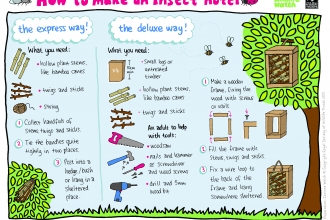 How to make an insect hotel
the express way!
What you need:
• hollow plant stems, like bamboo canes
• twigs and sticks
• string
1 Collect handfuls of stems, twigs and sticks.
2 Tie the bundles quite tightly in two places.
3 Post into a hedge/bush or hang in a sheltered place
the deluxe way!
What you need:
• small logs or untreated timber
• hollow plant stems, like bamboo canes
• twigs and sticks
An adult to help with tools:
• woodsaw
• nails and hammer or screwdriver and wood screws
• drill and 5mm wood bit
1 Make a wooden frame, fixing the wood with screws or nails
2 Fill the frame with stems, twigs and sticks
3 Fix a wire loop to the back of the frame and hang somewhere sheltered.